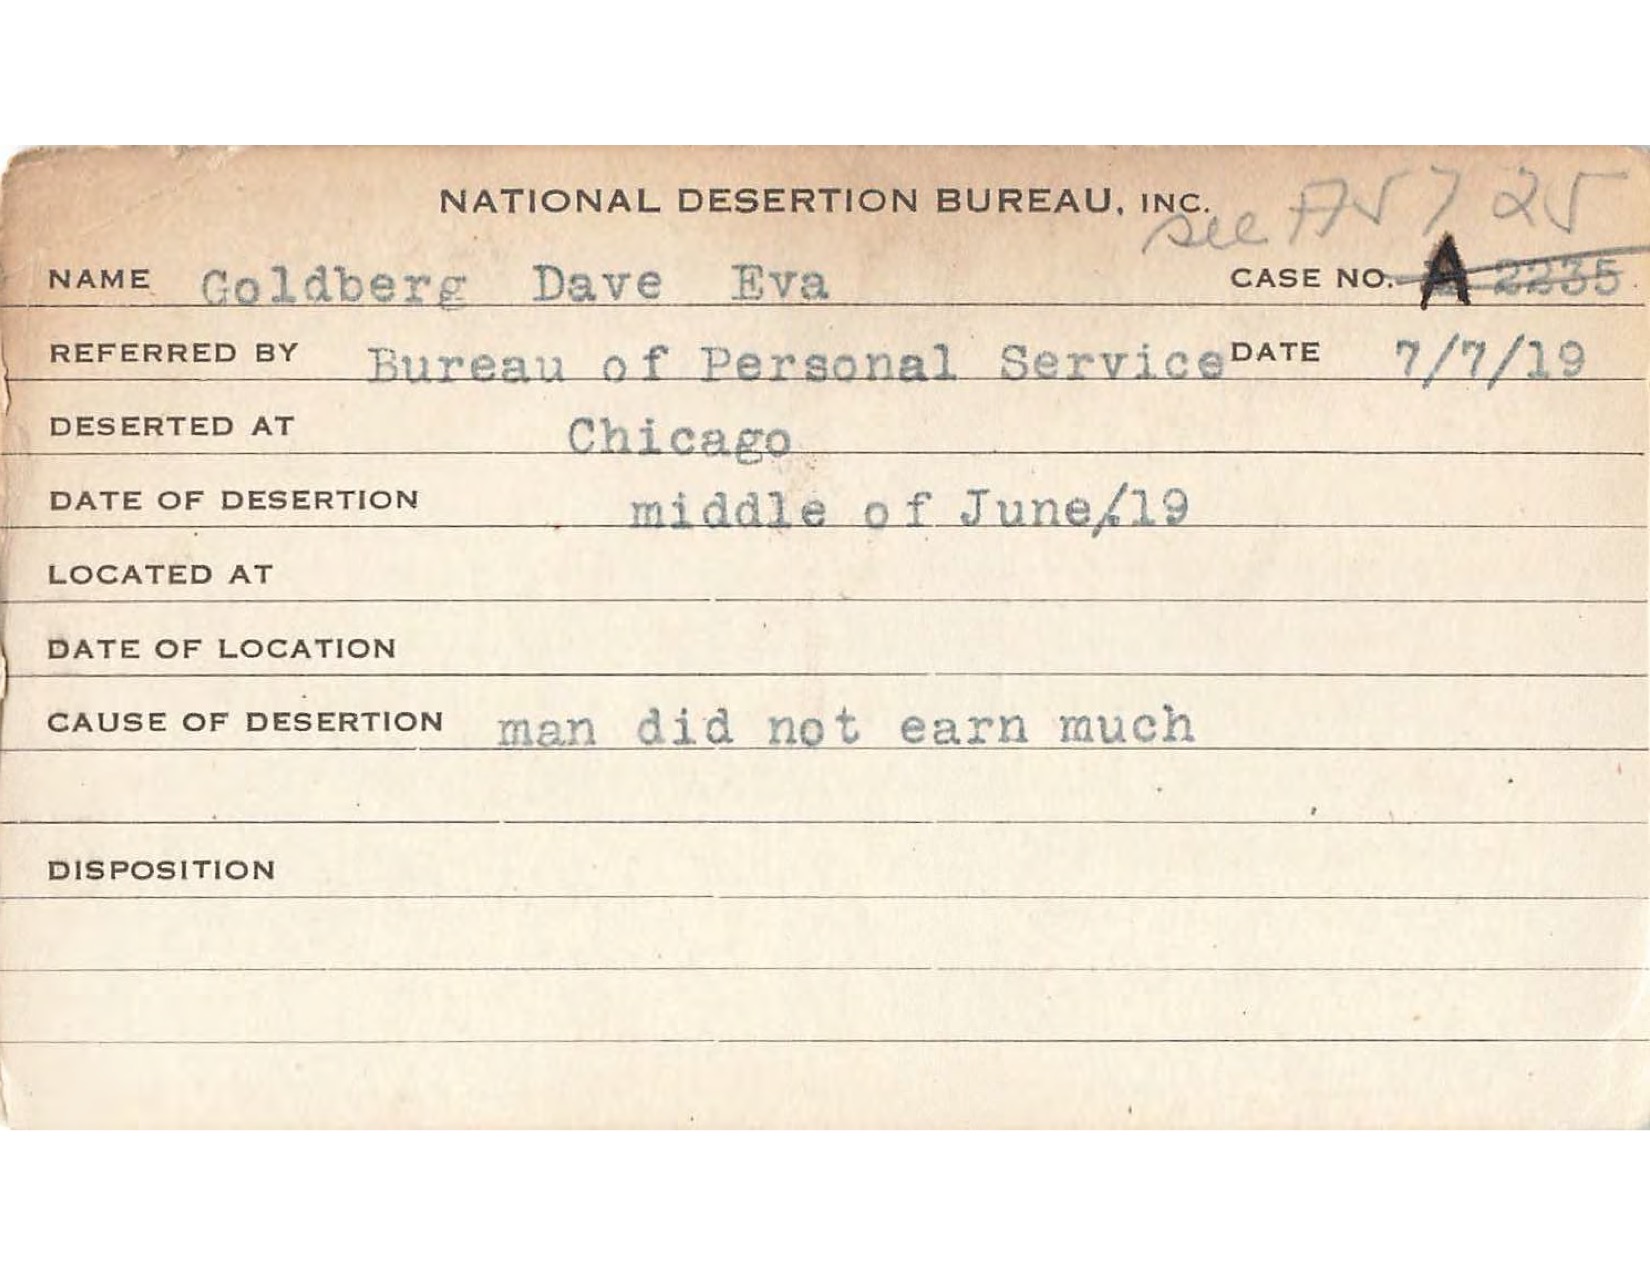 NATIONAL DESERTION BUREAU, INC.
see A5725
NAME Goldberg Dave Eva CASE NO. A 2235
REFERRED BY Bureau of Personal Service DATE 7/7/19
DESERTED AT Chicago
DATE OF DESERTION middle of June/19
LOCATED AT
DATE OF LOCATION
CAUSE OF DESERTION man did not earn much
DISPOSITION